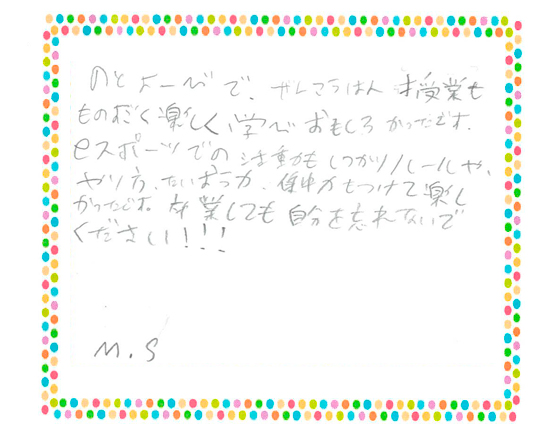 のとよーびで、 授業も
ものすごく楽しく学べおもしろかったです。
eスポーツでの活動もしっかりルールや、
やり方、たいおう力、集中力もつけて楽し
かったです。卒業しても自分を忘れないで
ください!!!
M.S